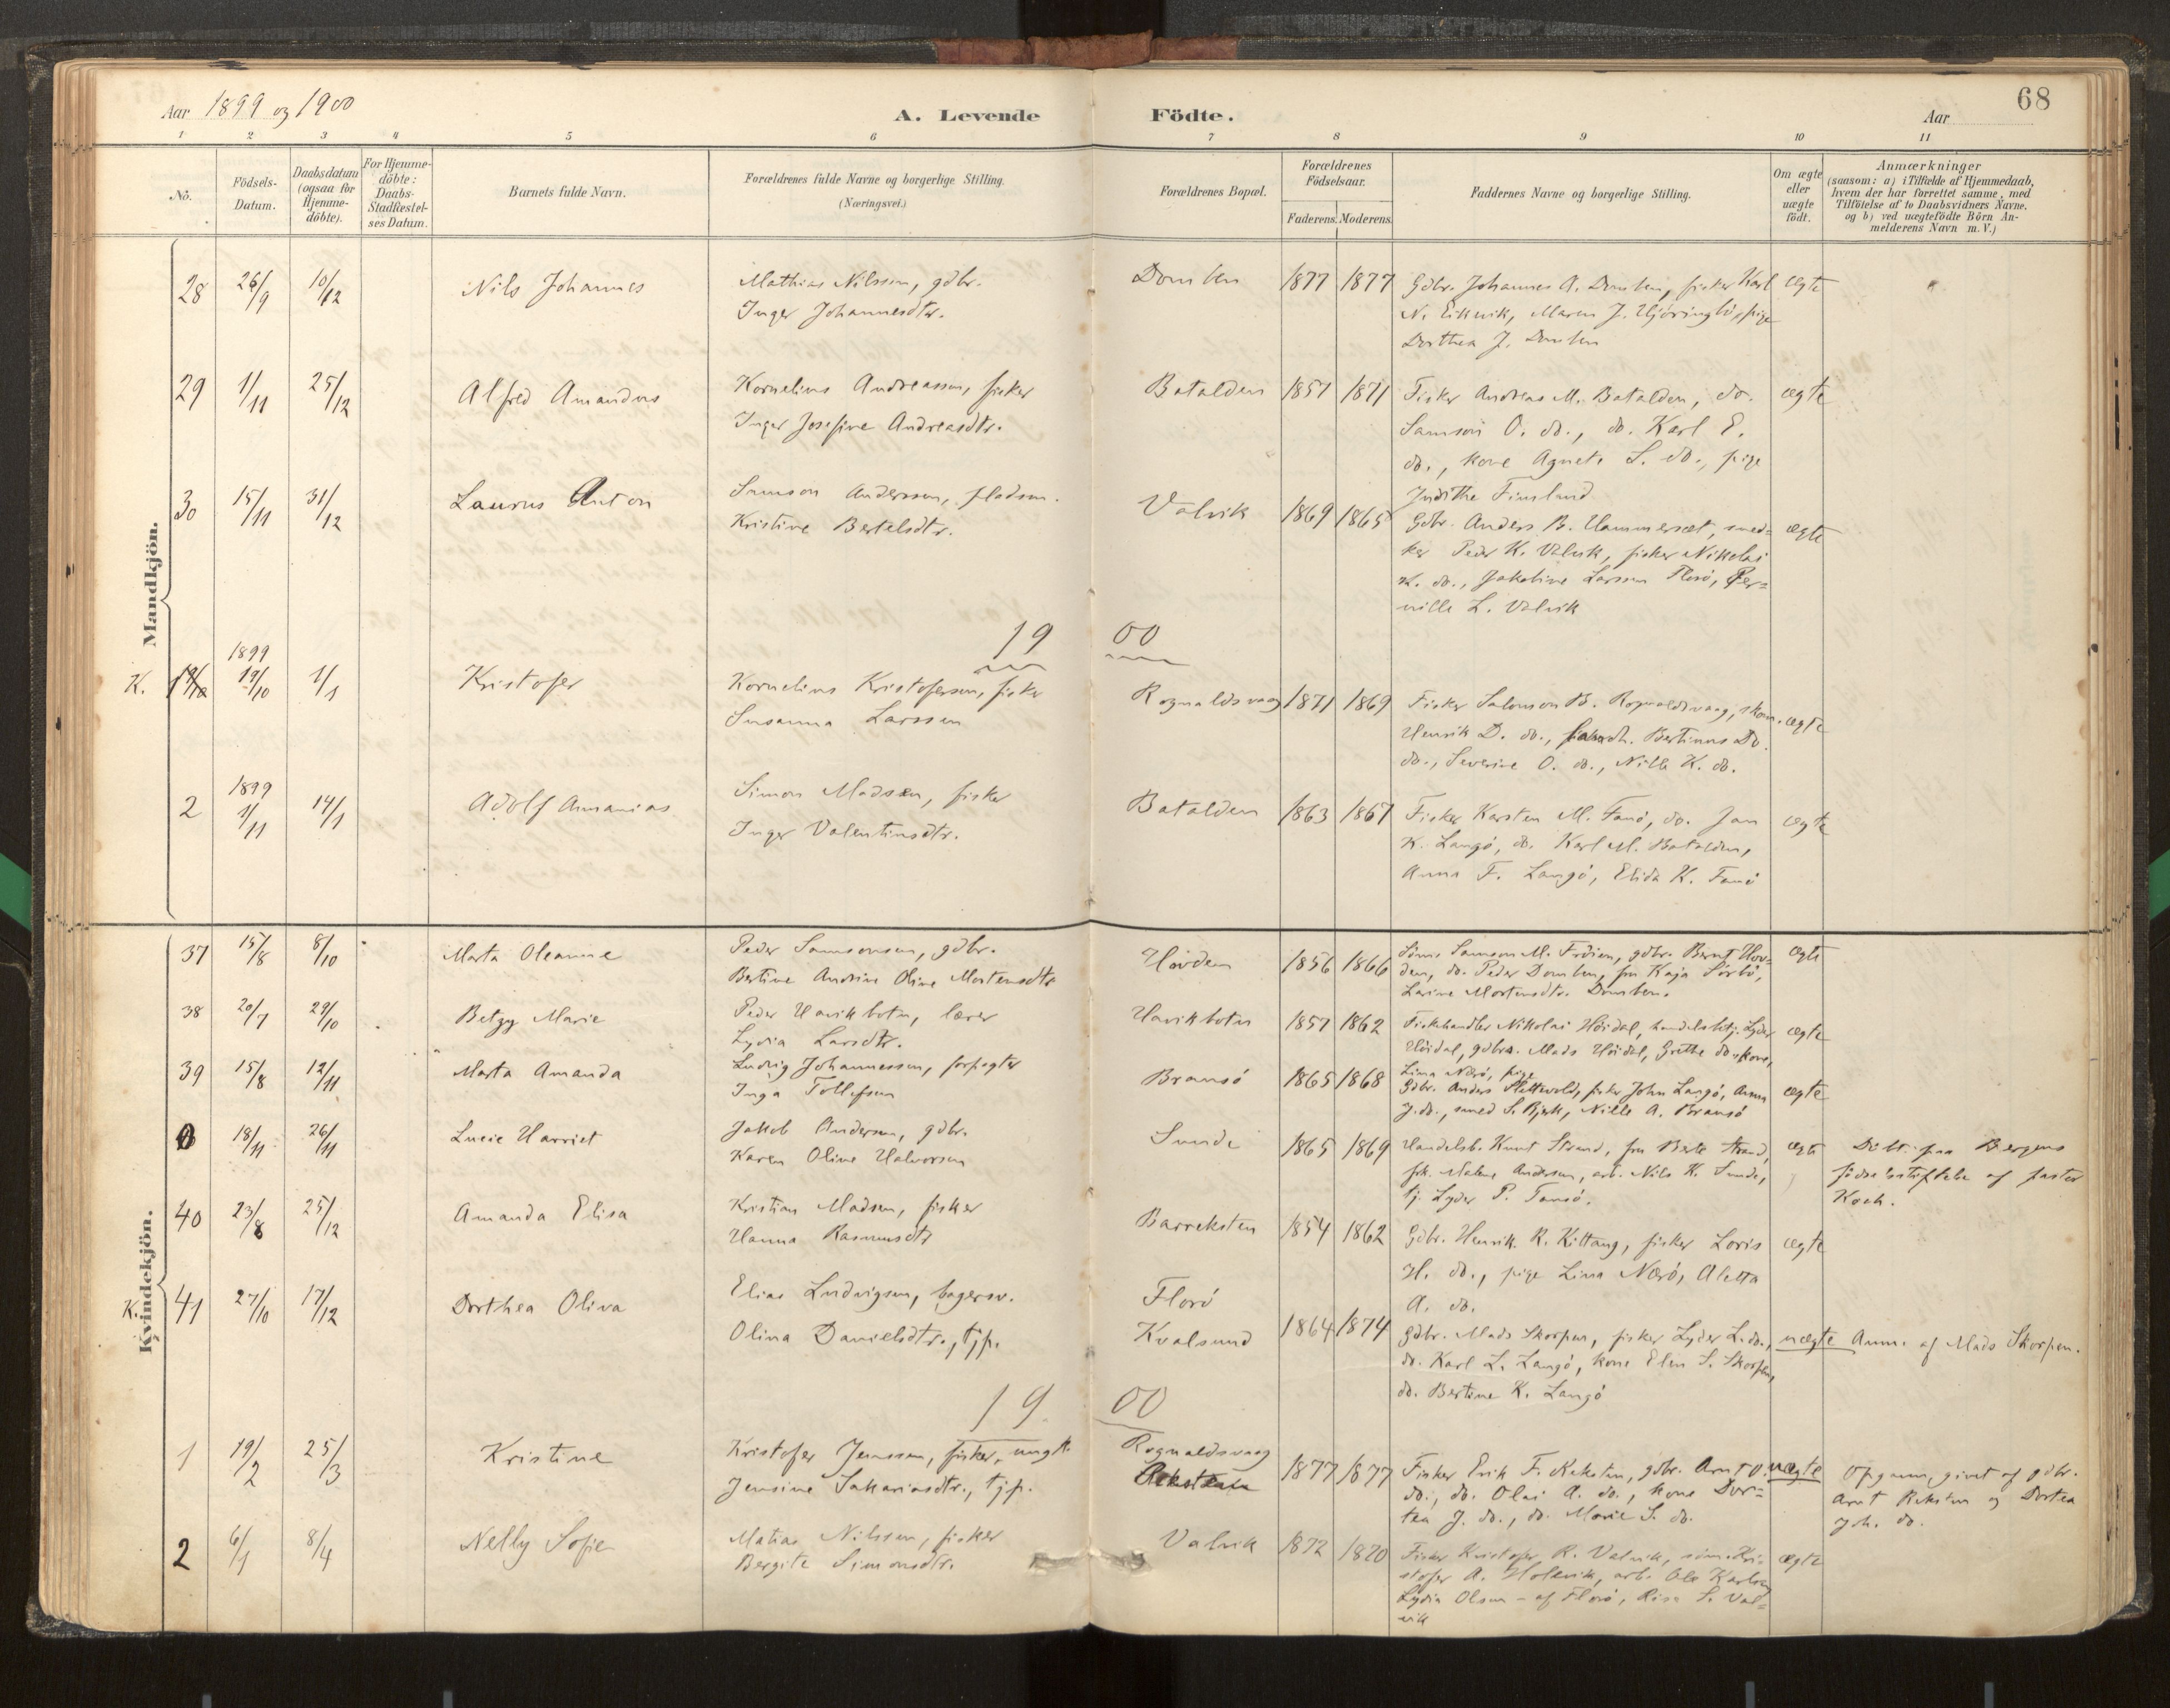 68
Aar 1899 og 1900
A. Levende Födte.
Aar
1 2 3 4 5 6 7 8 9 10 11
No.
Födsels-Datum.
Daabsdatum (ogsaa for Hjemme-döbte).
For Hjemme-döbte: Daabs-Stadfæstel-ses Datum.
Barnets fulde Navn.
Forældrenes fulde Navne og borgerlige Stilling.
(Næringsvei.)
Forældrenes Bopæl.
Forældrenes Födselsaar.
Faderens. Moderens.
Faddernes Navne og borgerlige Stilling.
Om ægte eller uægte födt.
Anmærkninger
(saasom: a) i Tilfælde af Hjemmedaab, hvem der har forrettet samme, med Tilföielse af to Daabsvidners Navne. og b) ved uægtefödte Börn An-melderens Navn m. V.)
Mandkjön.
28 26/9 10/12 Nils Johannes Mathias Nilssen, gdbr. Domben 1877 1877 Gdbr. Johannes A. Domben, fisker Karl ægte
Inger Johannesdtr. N. Eikevik, Maren J. Hjöringbö, pige
Dorthea J. Domben
29 1/11 25/12 Alfred Amandus Kornelius Andreassen, fisker Batalden 1857 1871 Fisker Andreas M. Batalden, do. ægte
Inger Josefine Andreasdtr. Samson O. do., do. Karl E.
do., kone Agnete S. do., pige
Judithe Finsland
30 15/11 31/12 Laurus Anton Samson Anderssen, pladsm. Valvik 1869 1865 Gdbr. Anders B. Hammersæt, sned= ægte
Kristine Bertelsdtr. ker Peder K. Valvik, fisker Nikolai
K. do., Jakobine Larsen Florö, Per=
nille L. Valvik
19 00
K. 1899 19/10 1/1 Kristofer Kornelius Kristofersen, fisker Rognaldsvaag 1871 1869 Fisker Salomon B. Rognaldsvaag, skom. ægte
Susanna Larssen Henrik D. do., Bertinus do.
do., Severine O. do., Nille K. do.
2 1899 1/11 14/1 Adolf Annanias Simon Madsen, fisker Batalden 1863 1867 Fisker Karsten M. Fanö, do. Jan ægte
Inger Valentinsdtr. K. Langö, do. Karl M. Batalden,
Anna F. Langö, Elida K. Fanö
Kvindekjön.
37 15/8 8/10 Marta Oleanne Peder Samsonsen, gdbr. Hovden 1856 1866 Sömm. Samson M. Fröien, gdbr. Bernt Hov= ægte
Bertine Andrine Oline Mortensdtr. den, do. Peder Domben, fru Kaja Sörbö,
Larine Mortensdtr. Domben.
38 20/7 29/10 Betzy Marie Peder Havikbotn, lærer Havikbotn 1857 1862 Fiskehandler Nikolai Höidal, handelsbetj. Lyder ægte
Lydia Larsdtr. Höidal, gdbr. Mads Höidal, Grethe do. kone,
Lina Nærö, pige
39 15/8 12/11 Marta Amanda Ludvig Johannessen, forpagter Bransö 1865 1868 Gdbr. Anders Slettevold, fisker John Langö, Anna ægte
Inga Tollefsen J. do., smed S. Bjerk, Nille A. Bransö
0 18/11 26/11 Lucie Harriet Jakob Andersen, gdbr. Sunde 1865 1869 Handelsb. Knut Strand, fru Berte Strand, ægte Döbt paa Bergens
Karen Oline Halvorsen frk. Malene Andersen, arb. Nils K. Sunde, födselsstiftelse af pastor
tj. Lyder P. Tansö. Koch.
40 23/8 25/12 Amanda Elisa Kristian Madsen, fisker Barreksten 1854 1862 Gdbr. Henrik R. Kittang, fisker Loris ægte
Hanna Rasmusdtr H. do., pige Lina Nærö, Aletta
A. do.
K. 41 27/10 17/12 Dorthea Oliva Elias Ludvigsen, bagersv. Florö 1864 1874 Gdbr. Mads Skorpen, fisker Lyder L. do., uægte Anm. af Mads Skorpen.
Olina Danielsdtr., tjp. Kvalsund do. Karl L. Langö, kone Elen S. Skorpen,
do. Bertine K. Langö
19 00
1 19/2 25/3 Kristine Kristofer Jenssen, fisker, ungk. Rognaldsvaag 1877 1877 Fisker Erik F. Reksten, gdbr. Arnt O. uægte Opgaven givet af gdbr.
Jensine Sakariasdtr., tjp. Reksten do., do. Olai A. do., kone Dor= Arnt Reksten og Dortea
tea J. do., do. Marie S. do. Joh. do.
2 6/1 8/4 Nelly Sofie Matias Nilssen, fisker Valvik 1872 1870 Fisker Kristofer R. Valvik, sömm. Kri= ægte
Bergite Simonsdtr. stofer A. Holevik, arb. Ole Karlsen,
Lydia Olsen - af Florö, Risa S. Val=
vik